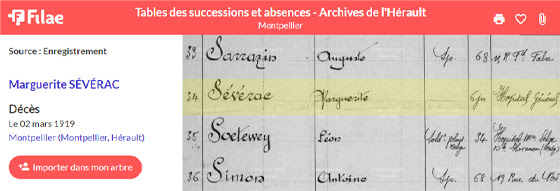 Filae
Tables des successions et absences - Archives de l'Hérault
Montpellier
Source : Enregistrement
Marguerite SÉVÉRAC
Décès
Le 02 mars 1919
Montpellier (Montpellier, Hérault)
Importer dans mon arbre
33 Sarrazin Auguste Sp. 68
34 Sévérac Marguerite Hôpital Général
35 Soetewey Léon 34
36 Simon Antoine Sp. 68 19 Rue du